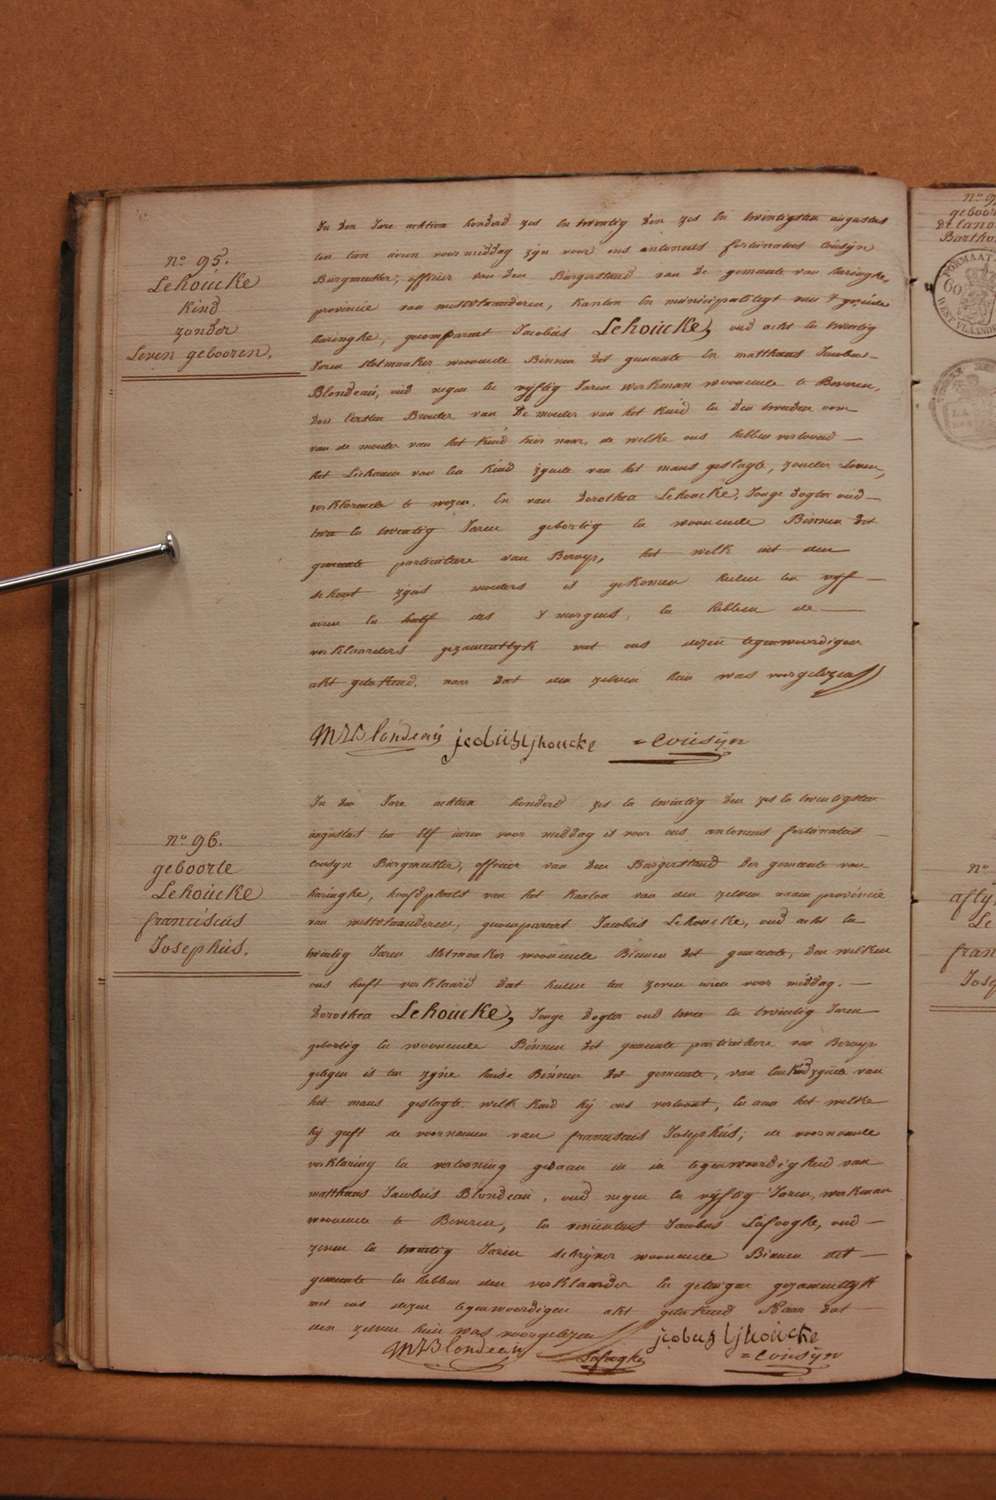 n.º 95.
Lehoucke
kind
zonder
Leven gebooren.
In den Jare achtien honderd zes en twintig den zes en twintigsten augustus
ten tien uren voor middag zyn voor ons antonius fortunatus Cousyn
Burgmeester, officier van den Burgerstand van de gemeente van haringhe,
provincie van westvlaanderen, kanton en municipaliteyt van
haringhe, gecompareert Jacobus Lehoucke, oud acht en twintig
Jaren slotmaaker woonende Binnen dit gemeente en matthaus Jacobus
Blondeau, oud negen en vyftig Jaren werkman woonende te Beveren,
den Eersten Broeder van de moeder van het kind en den tweeden oom
van de moeder van het kind hier naer, de welke ons hebben vertoond
het Lichaam van een kind zynde van het mans geslagte, zonder Leven,
verklarende te wezen, en van dorothea Lehoucke, Jonge dogter oud
twee en twintig Jaren geboortig en woonende Binnen dit
gemeente particuliere van Beroep, het welk uit den
schoot zyns moeders is gekomen heden ten vyf
uren en half des 's morgens, en hebben de
verklaarders gezamentlyk met ons dezen tegenwoordigen
akt geteekend, naer dat den zelven hun was voorgelezen
MJBlondeau jcobus Lhoucke = Cousyn
n.º 96.
geboorte
Lehoucke
franciscus
Josephus.
In den Jare achtien honderd zes en twintig den zes en twintigsten
augustus ten elf uren voor middag is voor ons antonius fortunatus
Cousyn Burgmeester, officier van den Burgerstand der gemeente van
haringhe, hoofdplaats van het kanton van den zelven naam provincie
van westvlaanderen, gecompareert Jacobus Lehoucke, oud acht en
twintig Jaren slotmaaker woonende Binnen dit gemeente, den welken
ons heeft verklaard dat heden ten zeven uren voor middag.
dorothea Lehoucke, Jonge dogter oud twee en twintig Jaren
geboortig en woonende Binnen dit gemeente particuliere van Beroep
gelegen is ten zyne huise Binnen dit gemeente, van een kind zynde van
het mans geslagte welk kind hy ons vertoont, en aan het welke
hy geeft de voornamen van franciscus Josephus; de voornoemde
verklaring en vertooning gedaan in tegenwoordigheid van
matthaus Jacobus Blondeau, oud negen en vyftig Jaren, werkman
woonende te Beveren, en vincentius Jacobus Lafooghe, oud
zeven en twintig Jaren schryver woonende Binnen dit
gemeente en hebben den verklaarder en getuigen gezamentlyk
met ons dezen tegenwoordigen akt geteekend Naar dat
den zelven hun was voorgelezen
jcobus Lhoucke
MJBlondeau Lafooghe = Cousyn
n.º 9
geboor
Bartho
FORMAAT
60
WEST VLAAND
n.º
Le
fran
Jose